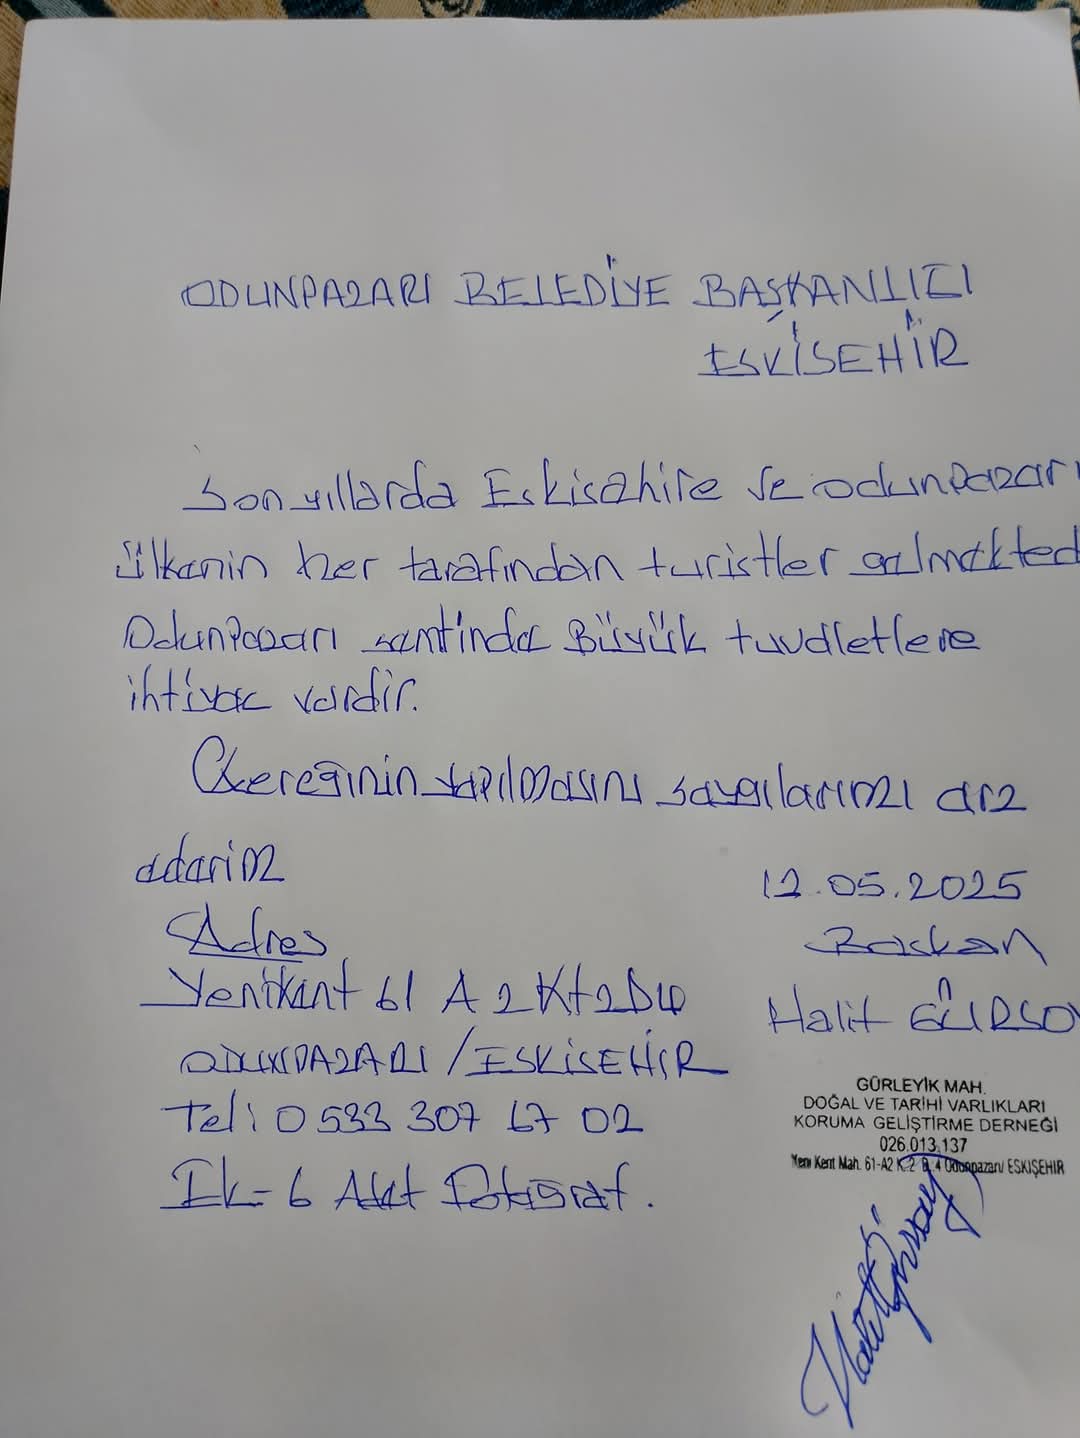 ODUNPAZARI BELEDİYE BAŞKANLIĞI
ESKİŞEHİR
Son yıllarda Eskisehire ve odunpazarı
ülkenin her tarafından turistler gelmekted
Odunpazarı semtinde Büyük tuvaletlere
ihtiyac vardir.
Gereğinin yapılmasını saygılarımzı arz
ederimz
12.05.2025
Adres
Baskan
Yenikent 61 A 2 Kt2D4
Halit GÜRSO
ODUNPAZARI / ESKİSEHİR
Tel: 0 533 307 67 02
Ek= 6 Adet Fotograf.
GÜRLEYİK MAH.
DOĞAL VE TARİHİ VARLIKLARI
KORUMA GELİŞTİRME DERNEĞİ
026.013.137
Yeni Kent Mah. 61-A2 K.2 D.4 Odunpazarı/ ESKİŞEHİR
Halit Gürsoy